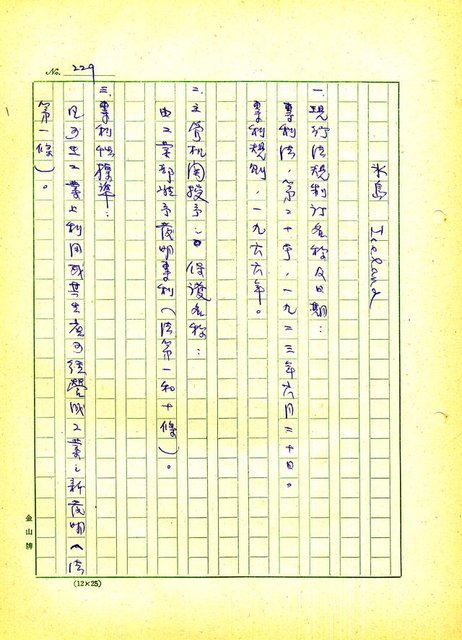 No. 229
冰島 Iceland
一、現行法規制訂名稱及日期：
專利法，第二十号，一九二三年六月二十日。
專利規則，一九六六年。
二、主管机関授予之保護名称：
由工業部准予發明專利（法第一和十條）。
三、專利性標準：
凡可在工業上利用或其生産可經營成工業之新發明（法
第一條）。
金山牌
(12×25)